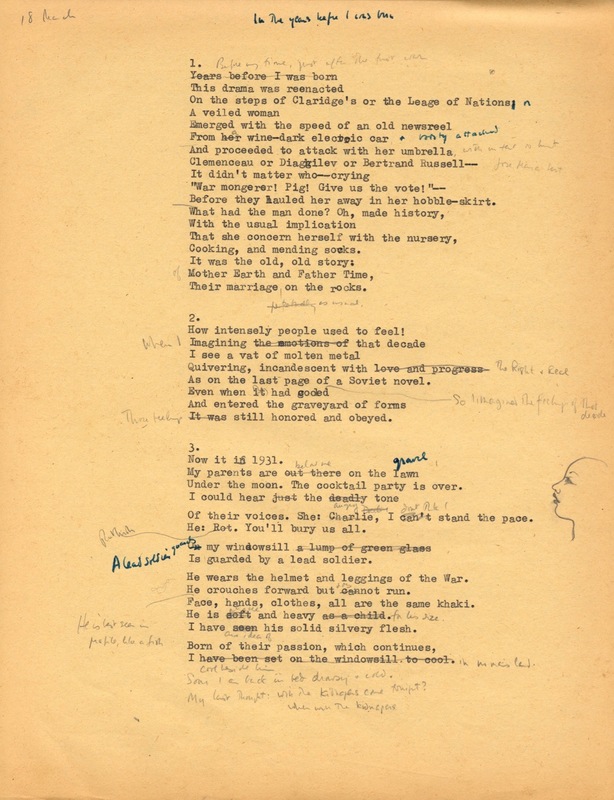 18 March
In the years before I was born
1. Before my time, just after the first war
Years before I was born
This drama was reenacted
On the steps of Claridge's or the Leage of Nations; n
A veiled woman
Emerged with the speed of an old newsreel
From her wine-dark electric car + attached
And proceeded to attack with her umbrella
Clemenceau or Diaghilev or Bertrand Russell--
It didn't matter who--crying
"War mongerer! Pig! Give us the vote!"--
Before they hauled her away in her hobble-skirt.
What had the man done? Oh, made history,
With the usual implication
That she concern herself with the nursery,
Cooking, and mending socks.
It was the old, old story:
of Mother Earth and Father Time,
Their marriage on the rocks.
as usual
2.
How intensely people used to feel!
When I Imagining the emotions of that decade
I see a vat of molten metal
Quivering, incandescent with love and progress The Right + Real
As on the last page of a Soviet novel.
Even when it had cooled
So I imagined the feelings of that decade
And entered the graveyard of forms
Those feelings It was still honored and obeyed.
3.
Now it is 1931.
below me gravel
My parents are out there on the lawn
Under the moon. The cocktail party is over.
I could hear just the deadly tone
angry
Of their voices. She: Charlie, I can't stand the pace.
He: Rot. You'll bury us all.
A lead soldier guards
On my windowsill a lump of green glass
Is guarded by a lead soldier.
He wears the helmet and leggings of the War.
He crouches forward but cannot run.
Face, hands, clothes, all are the same khaki.
He is soft and heavy as a child. for his size.
He is best seen in
profile, like a fish
I have seen his solid silvery flesh.
Born of their passion, which continues,
I have been set on the windowsill to cool. in no man's land.
cool beside him
Soon I am back in bed drowsy + cold.
My last thought: will the kidnapers come tonight?
when will the kidnapers